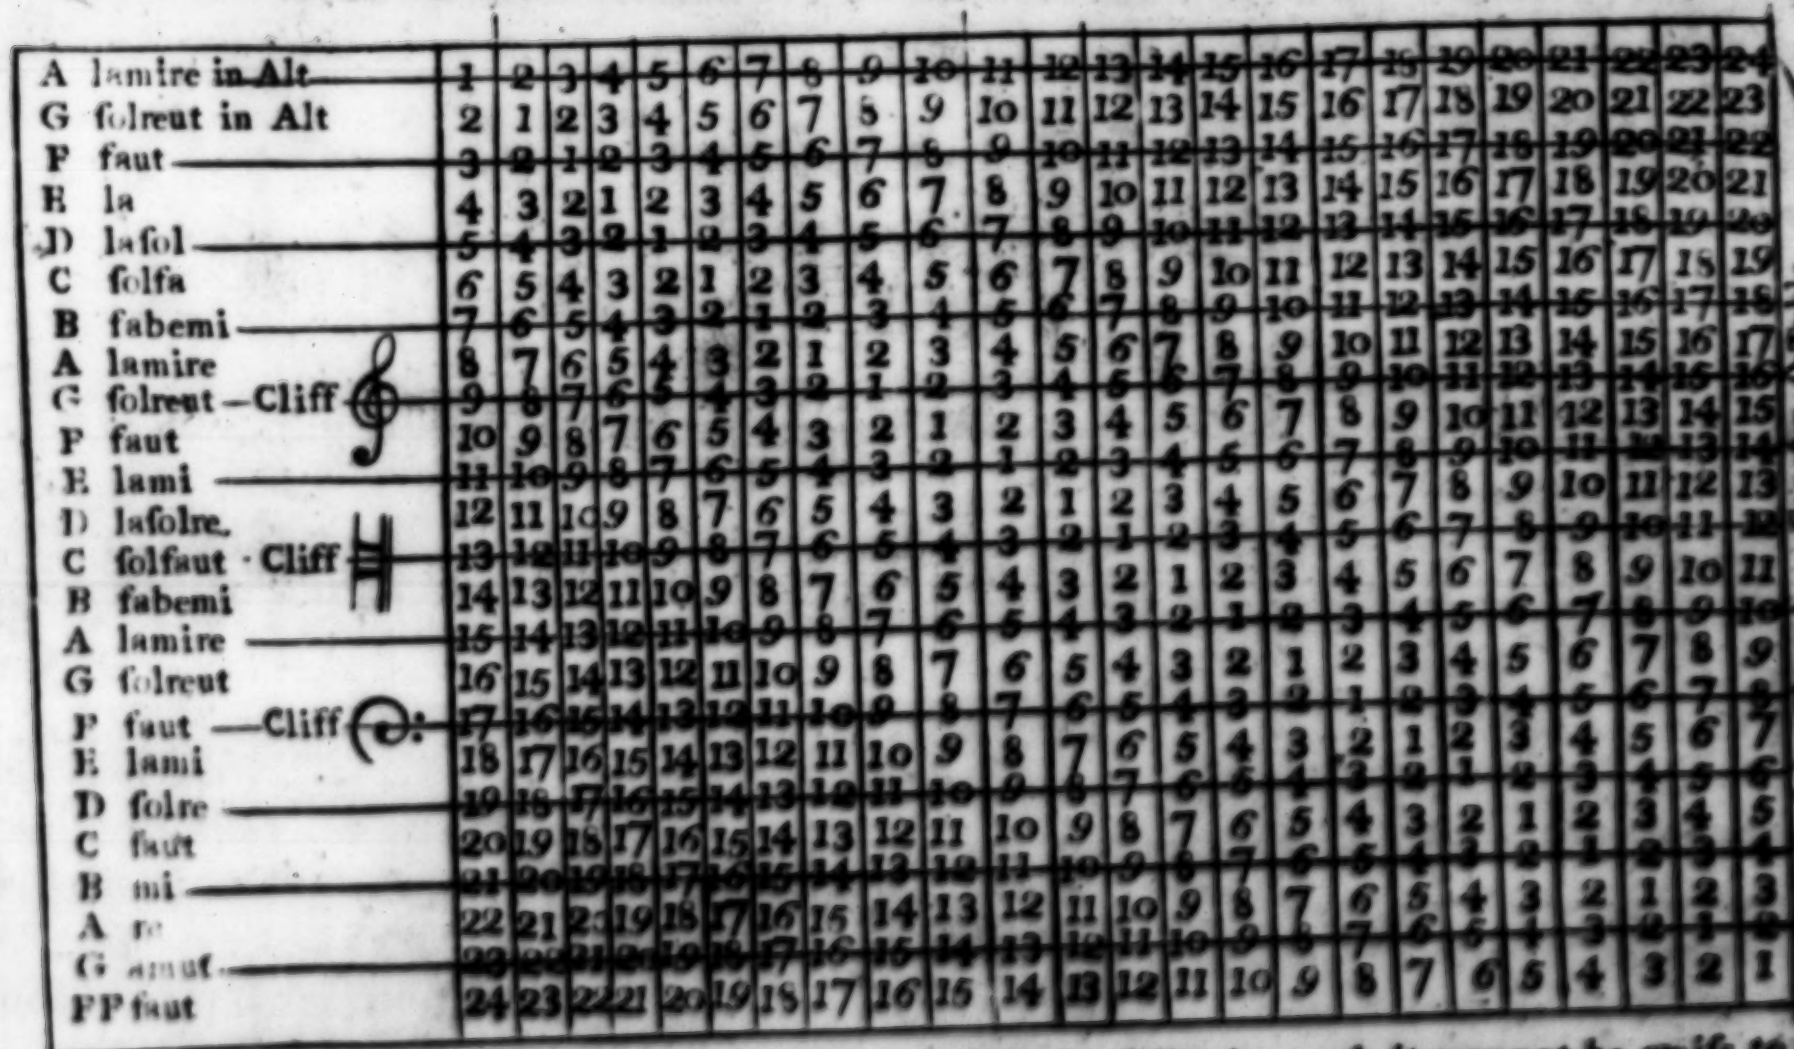 A lamire in Alt 1 2 3 4 5 6 7 8 9 10 11 12 13 14 15 16 17 18 19 20 21 22 23 24
G ſolreut in Alt 2 1 2 3 4 5 6 7 8 9 10 11 12 13 14 15 16 17 18 19 20 21 22 23
F faut 3 2 1 2 3 4 5 6 7 8 9 10 11 12 13 14 15 16 17 18 19 20 21 22
E la 4 3 2 1 2 3 4 5 6 7 8 9 10 11 12 13 14 15 16 17 18 19 20 21
D laſol 5 4 3 2 1 2 3 4 5 6 7 8 9 10 11 12 13 14 15 16 17 18 19 20
C ſolfa 6 5 4 3 2 1 2 3 4 5 6 7 8 9 10 11 12 13 14 15 16 17 18 19
B fabemi 7 6 5 4 3 2 1 2 3 4 5 6 7 8 9 10 11 12 13 14 15 16 17 18
A lamire 8 7 6 5 4 3 2 1 2 3 4 5 6 7 8 9 10 11 12 13 14 15 16 17
G ſolreut — Cliff 9 8 7 6 5 4 3 2 1 2 3 4 5 6 7 8 9 10 11 12 13 14 15 16
F faut 10 9 8 7 6 5 4 3 2 1 2 3 4 5 6 7 8 9 10 11 12 13 14 15
E lami 11 10 9 8 7 6 5 4 3 2 1 2 3 4 5 6 7 8 9 10 11 12 13 14
D laſolre, 12 11 10 9 8 7 6 5 4 3 2 1 2 3 4 5 6 7 8 9 10 11 12 13
C ſolfaut - Cliff 13 12 11 10 9 8 7 6 5 4 3 2 1 2 3 4 5 6 7 8 9 10 11 12
B fabemi 14 13 12 11 10 9 8 7 6 5 4 3 2 1 2 3 4 5 6 7 8 9 10 11
A lamire 15 14 13 12 11 10 9 8 7 6 5 4 3 2 1 2 3 4 5 6 7 8 9 10
G ſolreut 16 15 14 13 12 11 10 9 8 7 6 5 4 3 2 1 2 3 4 5 6 7 8 9
F faut — Cliff 17 16 15 14 13 12 11 10 9 8 7 6 5 4 3 2 1 2 3 4 5 6 7 8
E lami 18 17 16 15 14 13 12 11 10 9 8 7 6 5 4 3 2 1 2 3 4 5 6 7
D ſolre 19 18 17 16 15 14 13 12 11 10 9 8 7 6 5 4 3 2 1 2 3 4 5 6
C faut 20 19 18 17 16 15 14 13 12 11 10 9 8 7 6 5 4 3 2 1 2 3 4 5
B mi 21 20 19 18 17 16 15 14 13 12 11 10 9 8 7 6 5 4 3 2 1 2 3 4
A re 22 21 20 19 18 17 16 15 14 13 12 11 10 9 8 7 6 5 4 3 2 1 2 3
G amut 23 22 21 20 19 18 17 16 15 14 13 12 11 10 9 8 7 6 5 4 3 2 1 2
FF faut 24 23 22 21 20 19 18 17 16 15 14 13 12 11 10 9 8 7 6 5 4 3 2 1